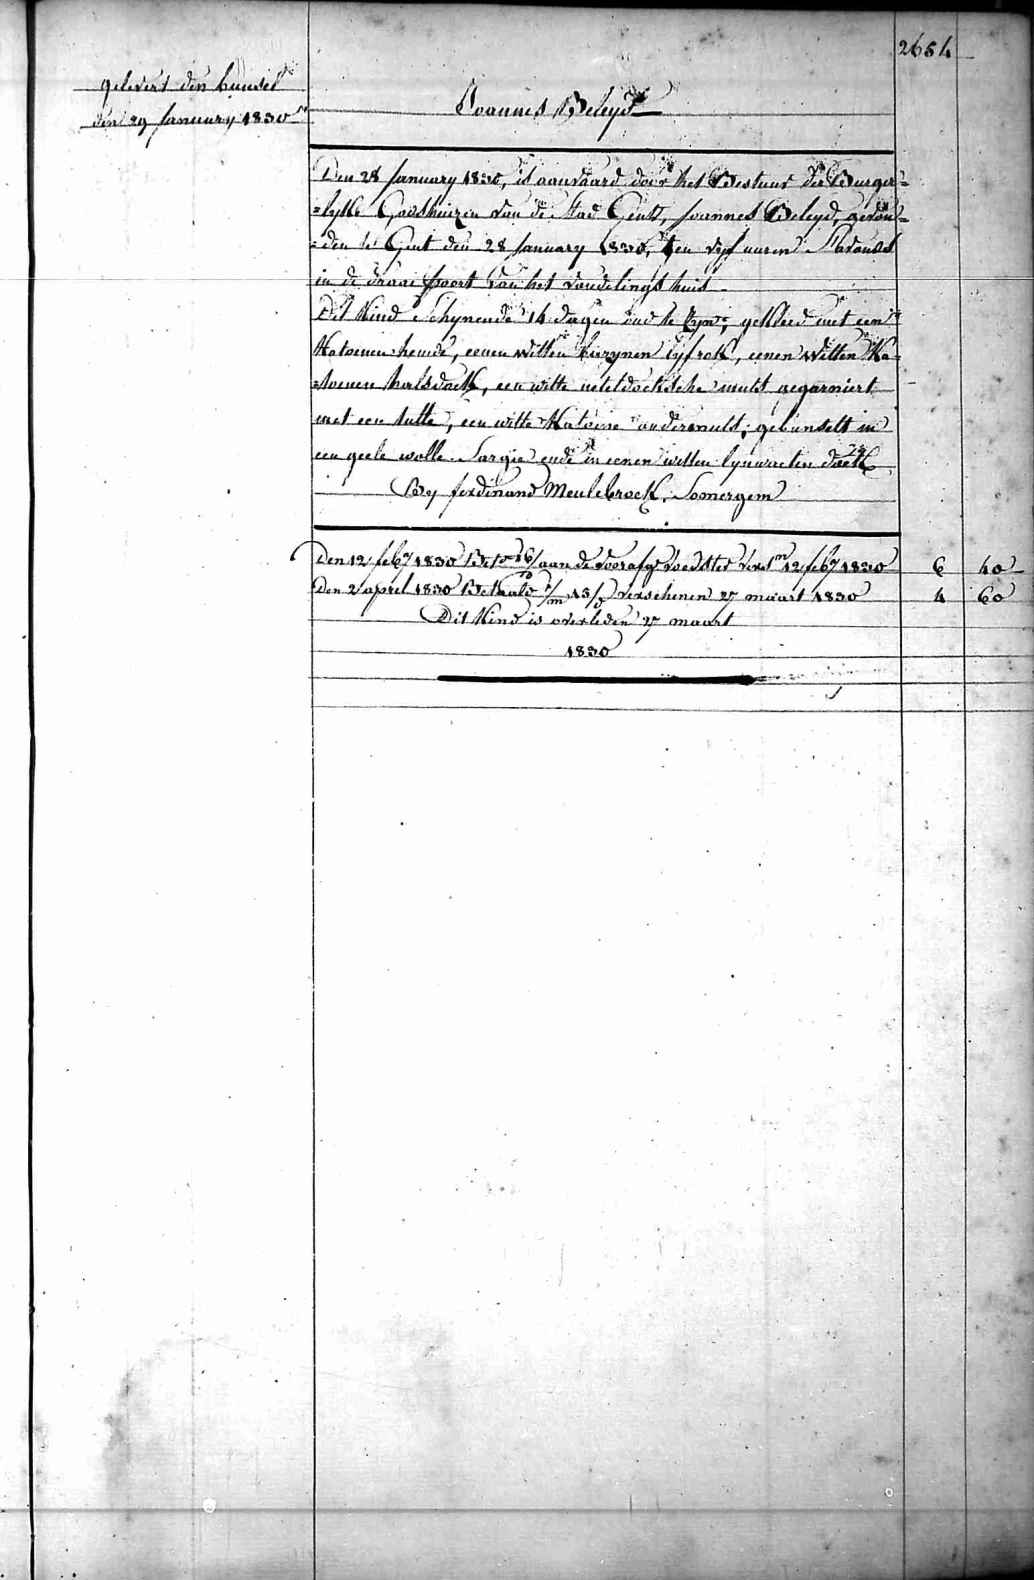 2654
gelevert den bunsel
den 29 January 1830
Joannes Beleyd
Den 28 January 1830, is aanvaard door het Bestuur der Burger=
=lyke Godshuizen van de Stad Gent, Joannes Beleyd, gevon=
=den te Gent den 28 January 1830, ten vyf uuren S'avonds
in de draai poort van het vondelings huis
Dit Kind Schynende 14 dagen oud te zyn, gekleed met een
Katoenen hemde, eenen witten lyfrok, eenen witten Ka=
=toenen halsdoek, een witte neteldoeksche muts gegarniert
met een tulle, een witte Katoine ondermuts, gebunselt in
een geele wolle Sargie ende in eenen witten lynwaeten doek
By ferdinand Meulebroek, Somergem
Den 12 feby 1830 aan de voorafge voedster versn 12 feby 1830 6 40
Den 2 april 1830 Betaald 1/m 15/d verschenen 27 maart 1830 4 60
Dit Kind is overleden 27 maart
1830